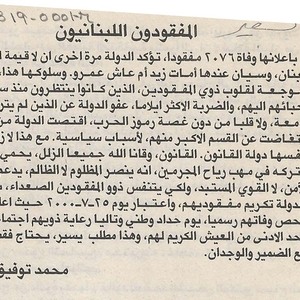 B19-0001
السفير
المفقودون اللبنانيون
باعلانها وفاة ٢٠٧٦ مفقودا، تؤكد الدولة مرة اخرى ان لا قيمة
بنان، وسيان عندها أمات زيد أم عاش عمرو. وسلوكها هذا
موجعة لقلوب ذوي المفقودين، الذين كانوا ينتظرون منذ س
يائهم اليهم، والضربة الاكثر ايلاما، عفو الدولة عن الذين لم
مة، ولا قلبا من دون غصة رموز الحرب، اقتصت الدولة من
تغاضت عن القسم الاكبر منهم، لأسباب سياسية. مع هذا لا
فسها دولة القانون. القانون، وقانا الله جميعا الزلل، يحمي
تركه في مهب رياح المجرمين، انه ينصر المظلوم لا الظالم،
من، لا القوي المستبد، ولكي يتنفس ذوو المفقودين الصعداء،
لدولة تكريم مفقوديهم، واعتبار يوم ٢٥-٧-٢٠٠٠ حيث اعلن
حص وفاتهم رسميا، يوم حداد وطني وتاليا رعاية ذويهم اجتما
حد الادنى من العيش الكريم لهم، وهذا مطلب يسير، يحتاج فقط
ع الضمير والوجدان.
محمد توفيق